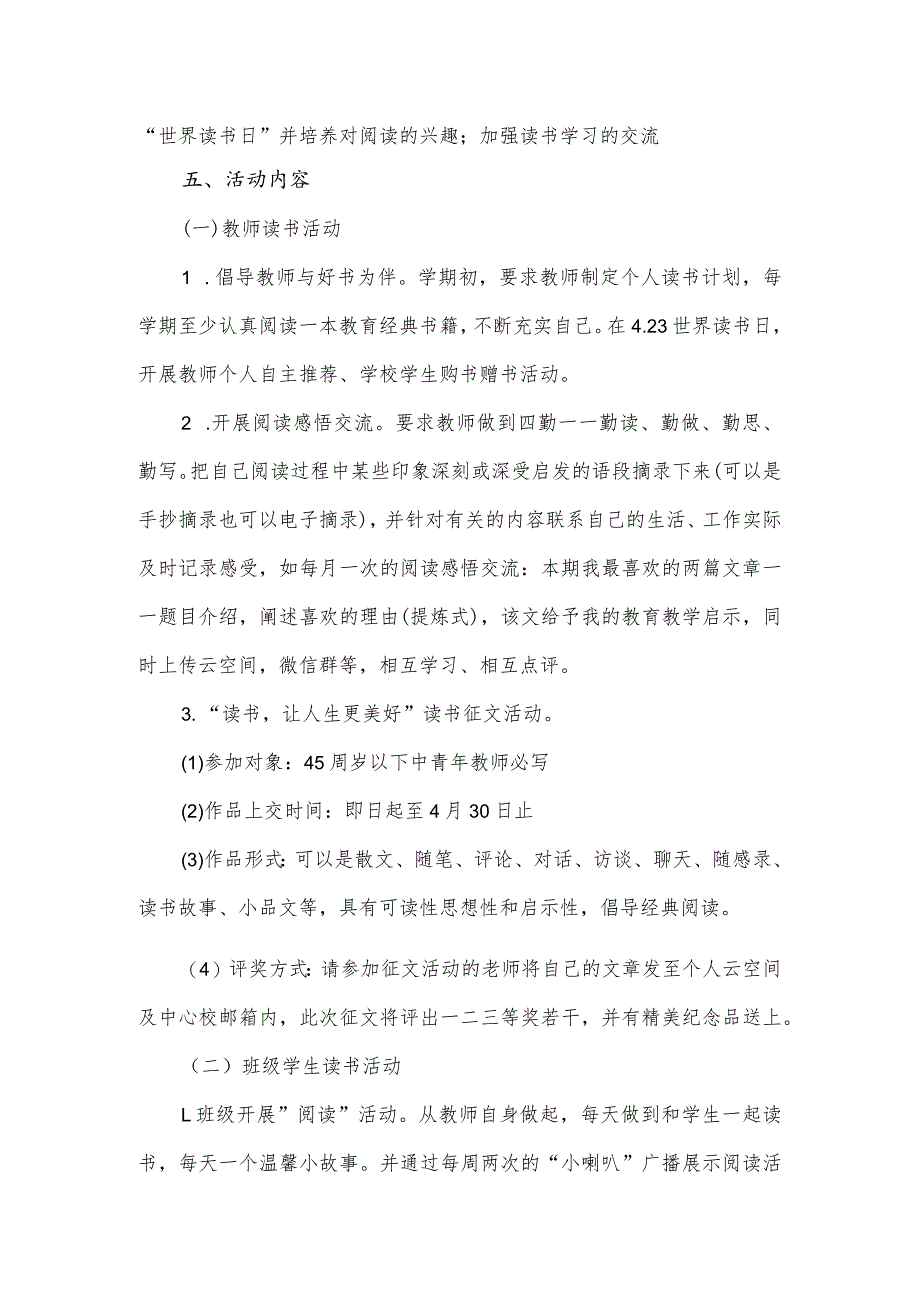 “世界读书日”并培养对阅读的兴趣；加强读书学习的交流
五、活动内容
(一)教师读书活动
1 .倡导教师与好书为伴。学期初，要求教师制定个人读书计划，每
学期至少认真阅读一本教育经典书籍，不断充实自己。在 4.23 世界读书日，
开展教师个人自主推荐、学校学生购书赠书活动。
2 .开展阅读感悟交流。要求教师做到四勤一一勤读、勤做、勤思、
勤写。把自己阅读过程中某些印象深刻或深受启发的语段摘录下来(可以是
手抄摘录也可以电子摘录)，并针对有关的内容联系自己的生活、工作实际
及时记录感受，如每月一次的阅读感悟交流：本期我最喜欢的两篇文章一
一题目介绍，阐述喜欢的理由(提炼式)，该文给予我的教育教学启示，同
时上传云空间，微信群等，相互学习、相互点评。
3. “读书，让人生更美好”读书征文活动。
(1)参加对象：45 周岁以下中青年教师必写
(2)作品上交时间：即日起至 4 月 30 日止
(3)作品形式：可以是散文、随笔、评论、对话、访谈、聊天、随感录、
读书故事、小品文等，具有可读性思想性和启示性，倡导经典阅读。
（4）评奖方式：请参加征文活动的老师将自己的文章发至个人云空间
及中心校邮箱内，此次征文将评出一二三等奖若干，并有精美纪念品送上。
（二）班级学生读书活动
L 班级开展”阅读”活动。从教师自身做起，每天做到和学生一起读
书，每天一个温馨小故事。并通过每周两次的“小喇叭”广播展示阅读活